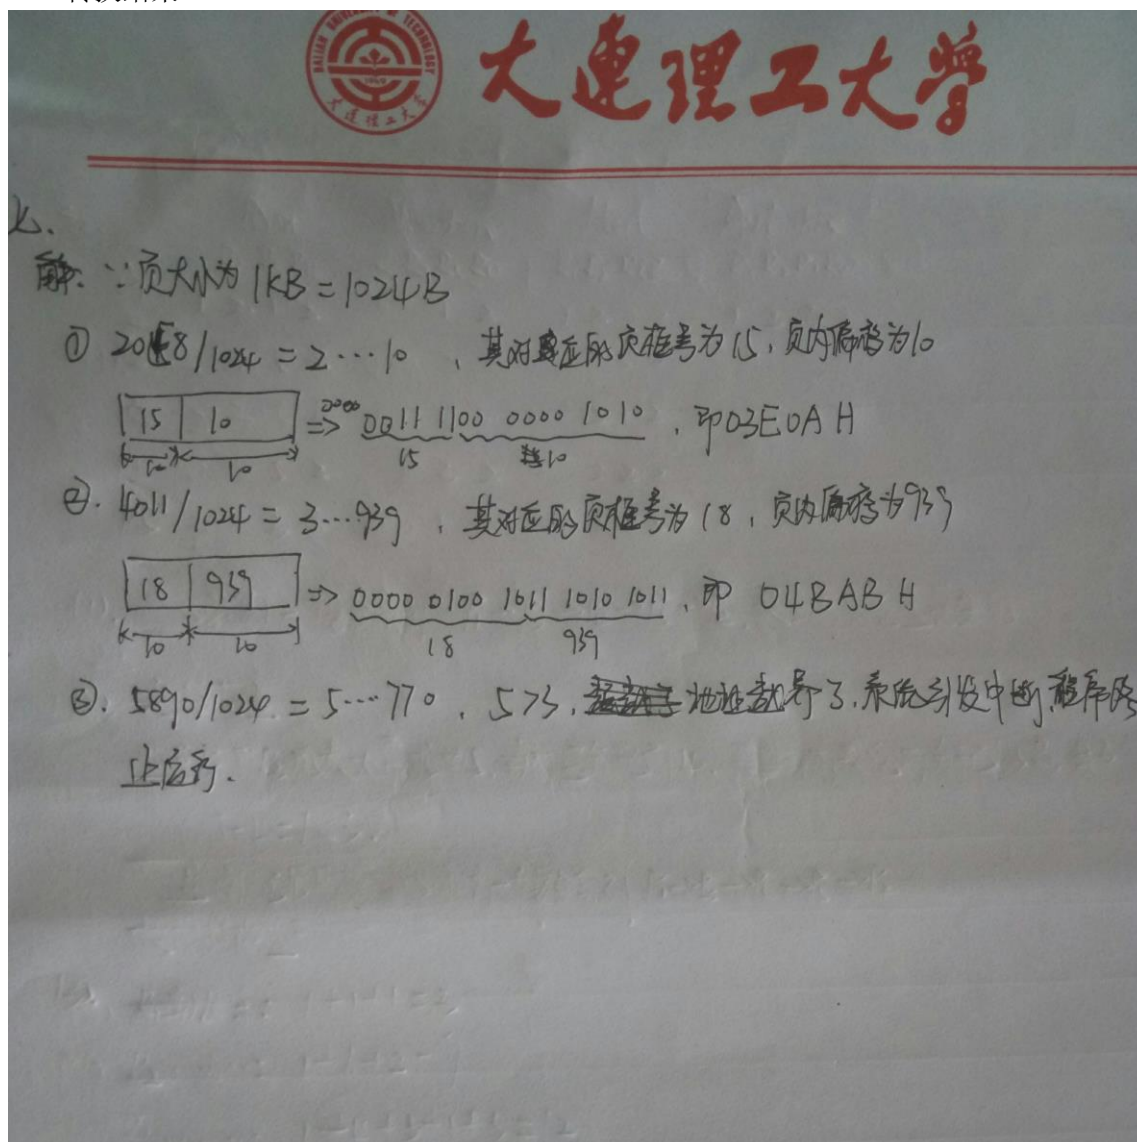 DALIAN UNIVERSITY OF TECHNOLOGY
1949
大连理工大学
大連理工大学
七、
解: ∵页大小为1KB=1024B
① 2058/1024 = 2…10 , 其对应的页框号为15, 页内偏移为10
15 10 ⇒ 0000 0011 1100 0000 1010 , 即03E0AH
10 10 15 10
②. 4011/1024 = 3…939 , 其对应的页框号为18, 页内偏移为939
18 939 ⇒ 0000 0100 1011 1010 1011 , 即 04BABH
10 10 18 939
③. 5890/1024 = 5…770 , 5>3, 地址越界了, 系统引发中断, 程序终
止运行.